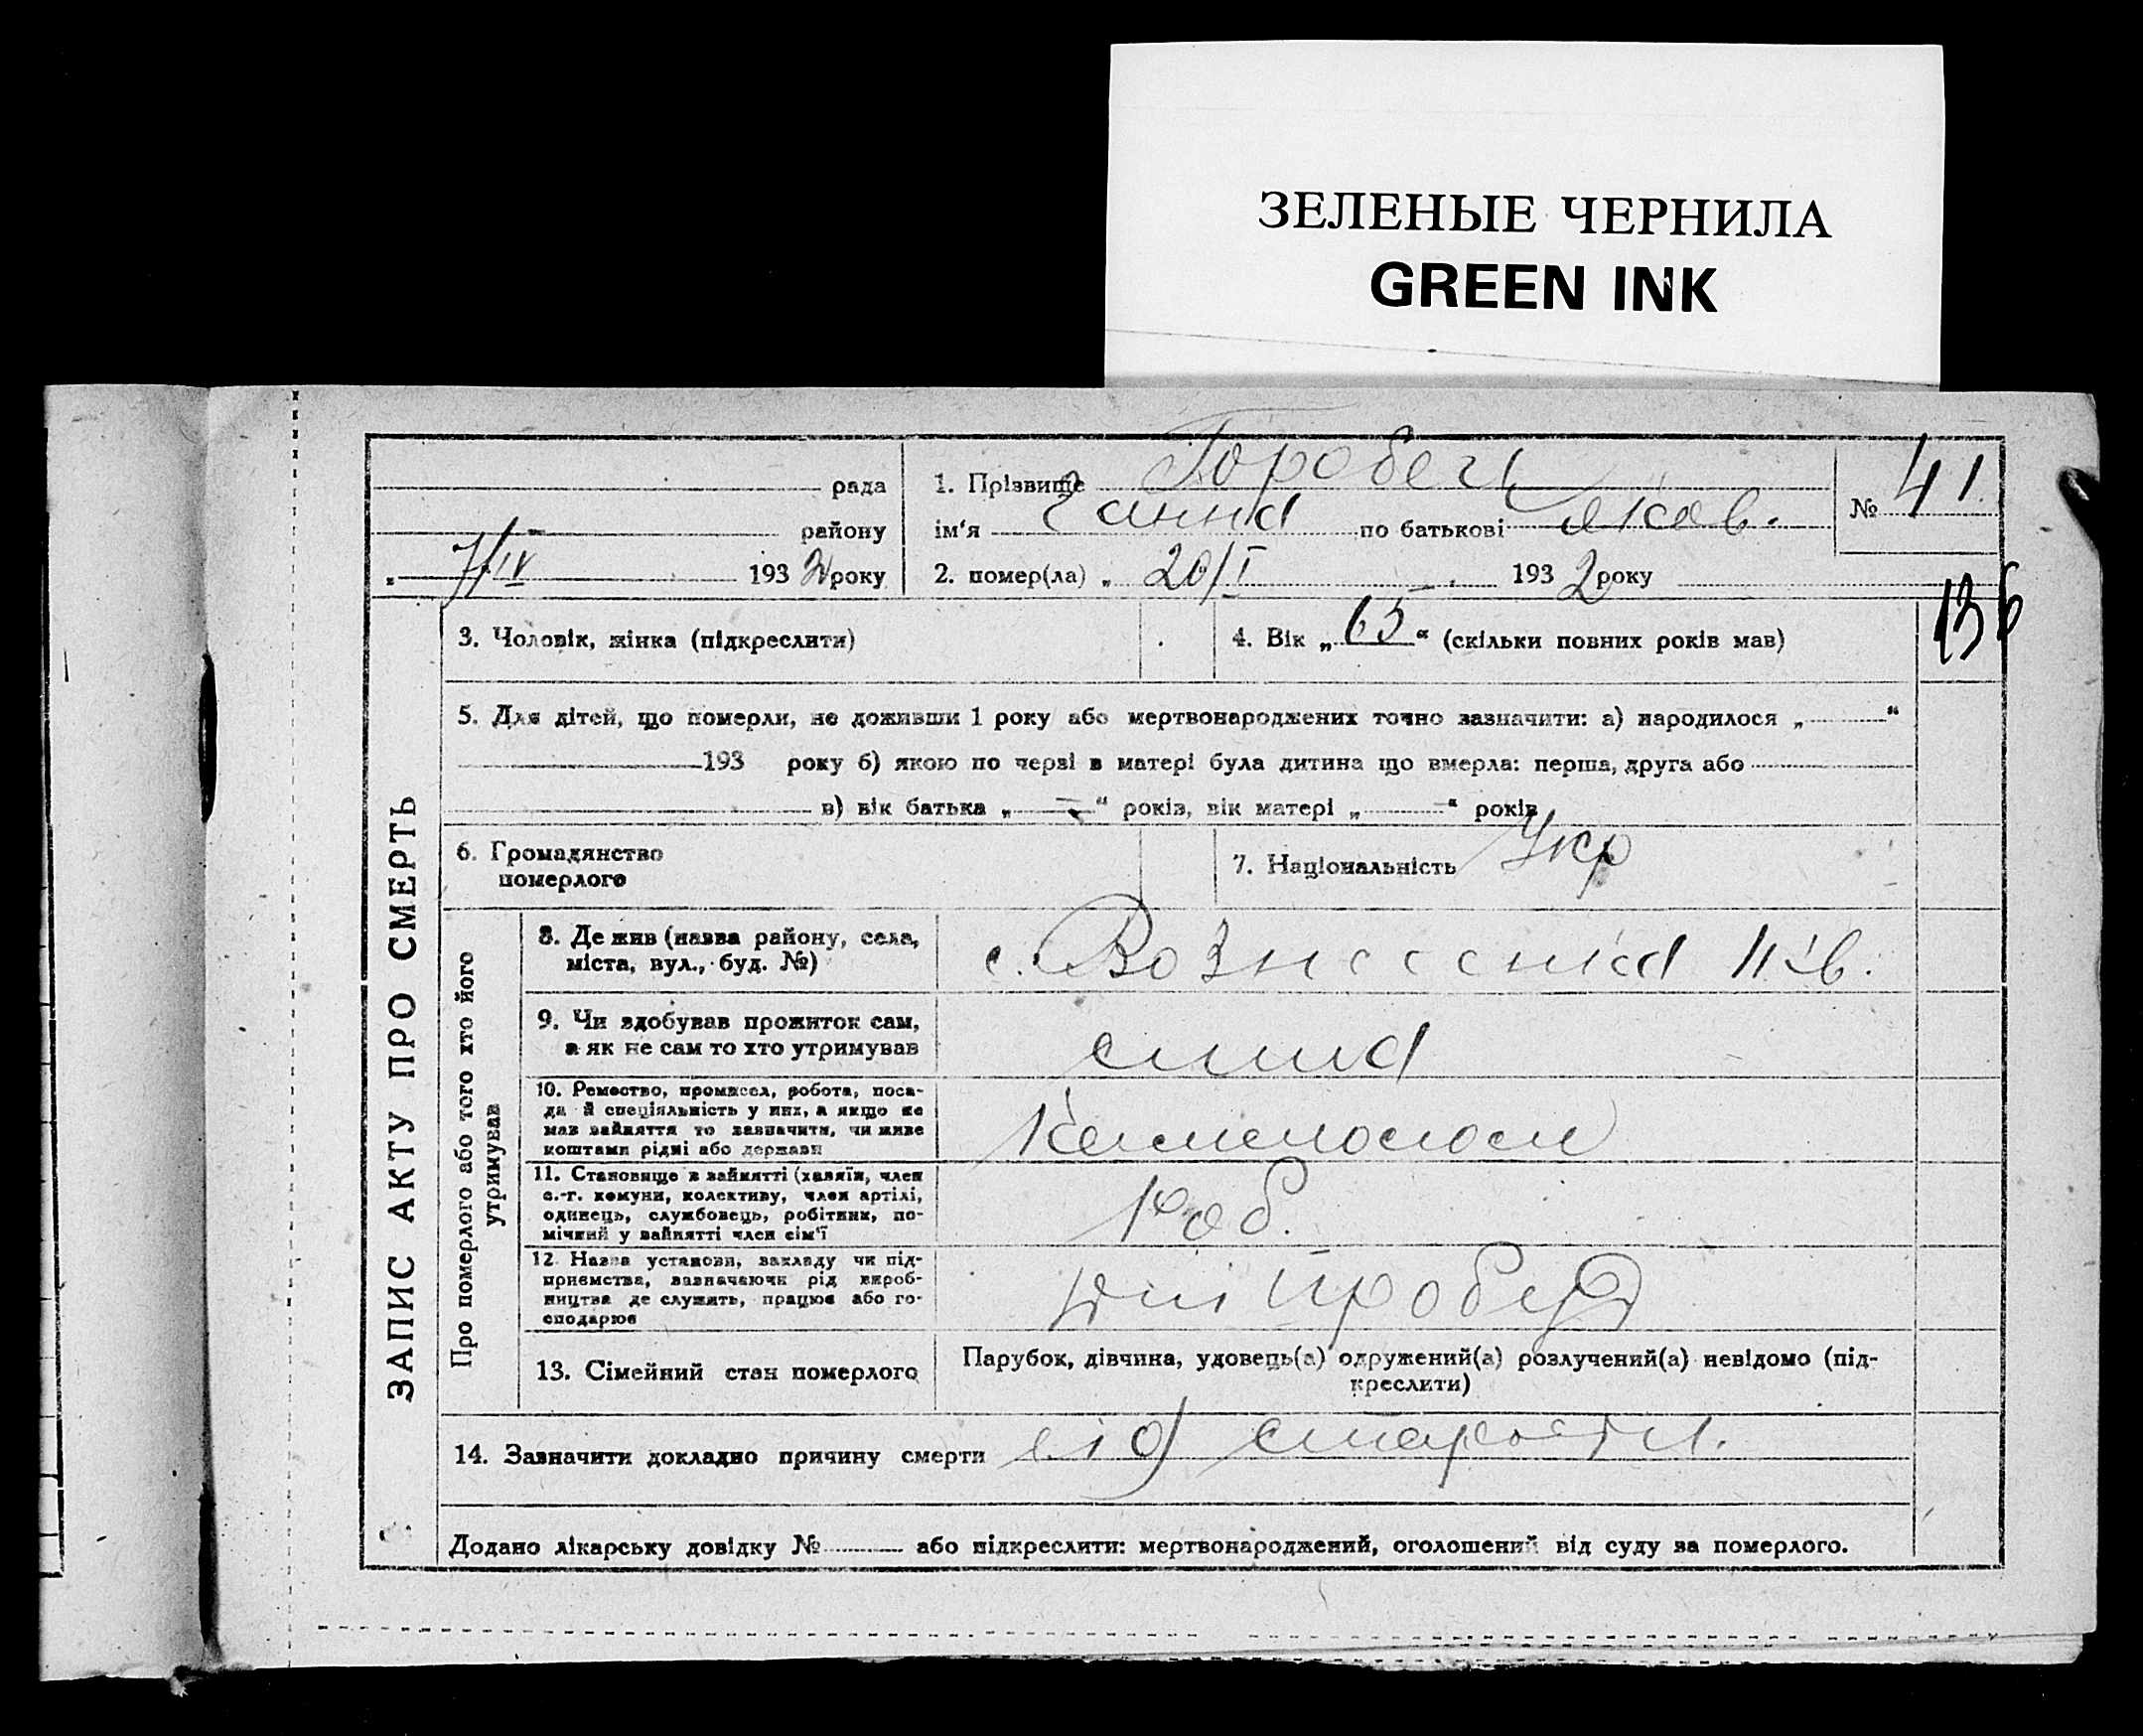 ЗЕЛЕНЫЕ ЧЕРНИЛА
GREEN INK
рада
району
7/IV 1932 року
1. Прізвище Горобець
ім'я Ганна по батькові Яков.
2. помер(ла) „ 20/I 1932 року
№ 41
136
ЗАПИС АКТУ ПРО СМЕРТЬ
3. Чоловік, жінка (підкреслити)
4. Вік „65“ (скільки повних років мав)
5. Для дітей, що померли, не доживши 1 року або мертвонароджених точно зазначити: а) народилося „ “
193 року б) якою по черзі в матері була дитина що вмерла: перша, друга або
в) вік батька „ “ років, вік матері „ “ років
6. Громадянство
померлого
7. Національність Укр
Про померлого або того хто його
утримував
8. Де жив (назва району, села,
міста, вул., буд. №)
с. Вознесенка
9. Чи здобував прожиток сам,
а як не сам то хто утримував
10. Ремество, промисел, робота, поса-
да й спеціяльність у них, а якщо не
мав зайняття то зазначити, чи живе
коштами рідні або держави
11. Становище в зайнятті (хазяїн, член
с.-г. комуни, колективу, член артілі,
одинець, службовець, робітник, по-
мічний у зайнятті член сім'ї
Роб.
12. Назва установи, закладу чи під-
приємства, зазначаючи рід вироб-
ництва де служить, працює або го-
сподарює
Дніпробуд
13. Сімейний стан померлого
Парубок, дівчина, удовець(а) одружений(а) розлучений(а) невідомо (під-
креслити)
14. Зазначити докладно причину смерти від старости.
Додано лікарську довідку № або підкреслити: мертвонароджений, оголошений від суду за померлого.